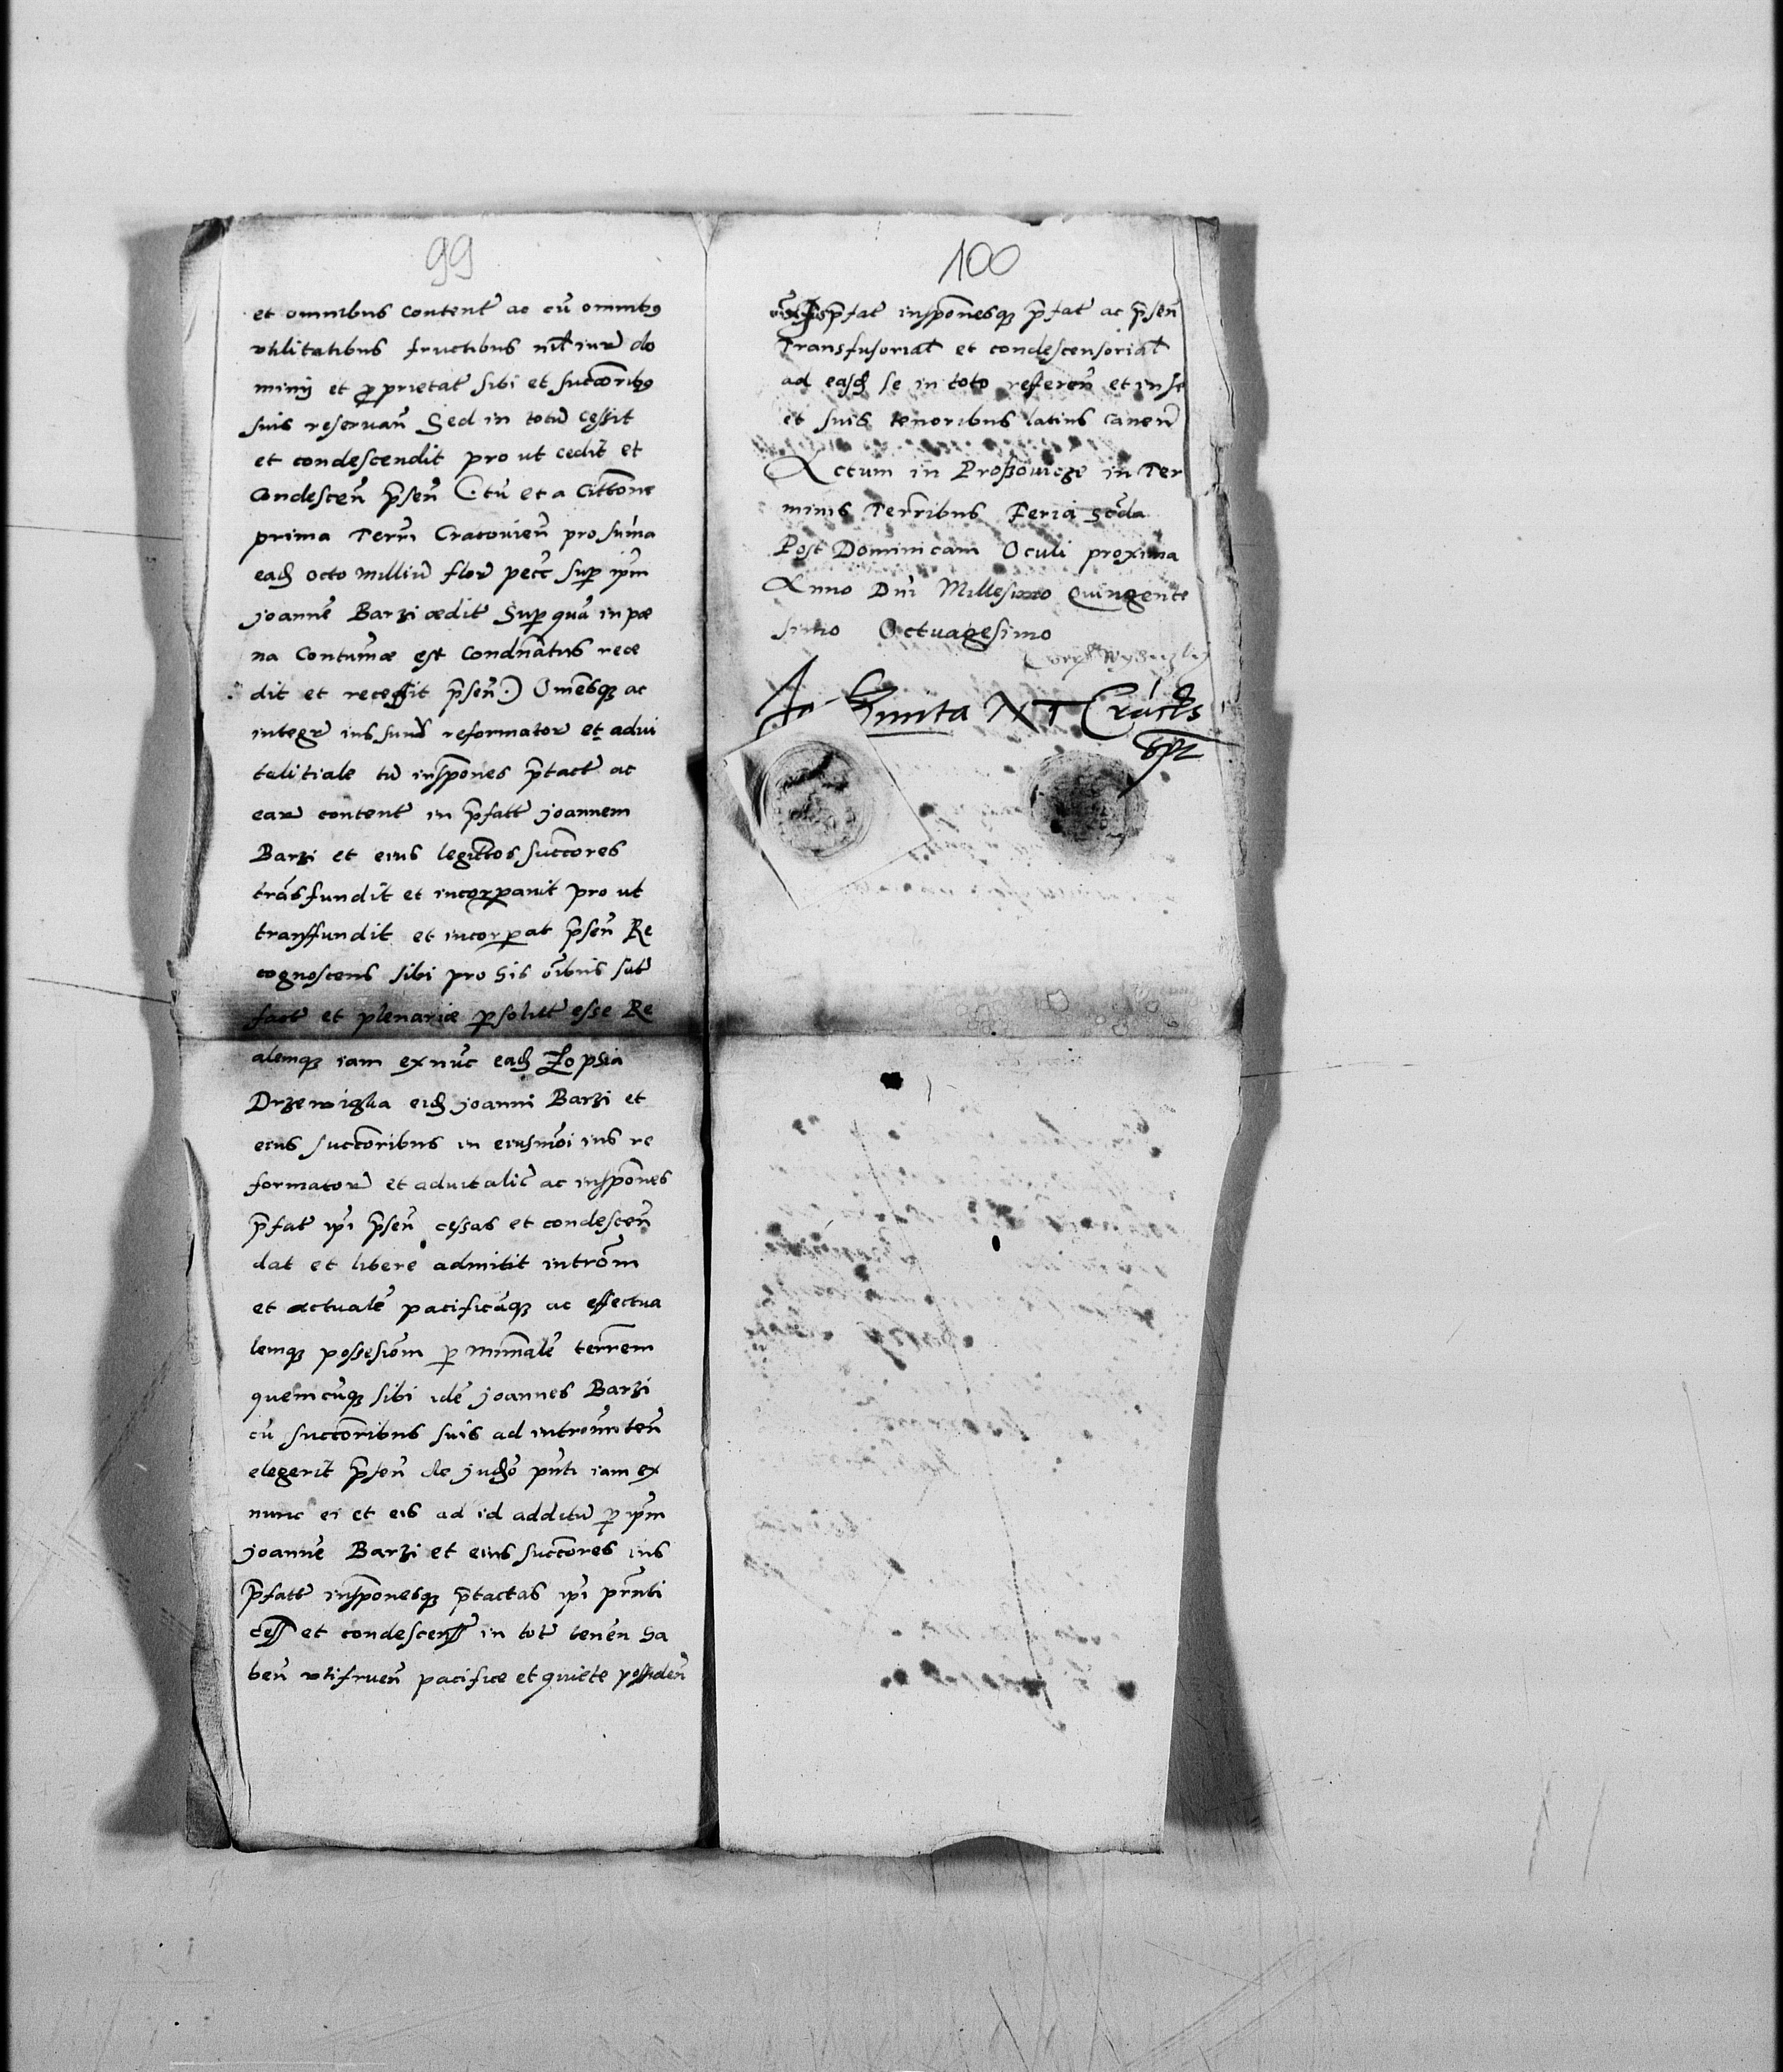 99
et omnibus content̃ ac cũ omnibꝰ
vtilitatibus fructibus nil iur̃ do
minij et ꝓprietat̃ sibi et succõribꝰ
suis reseruan̄ Sed in totũ cessit
et condescendit pro ut cedit et
Condescen̄ p̄sen̄ (·tũ et a Citt̃one
prima Term̃ Cracouien̄ pro sum̃a
eadꝫ octo milliũ flor̃ pecc̃ suꝑ ip̃m
joannẽ Barzi ædit̃ Suꝑ quã in pœ
na Contumæ est Condn̄atus rece
dit et recessit p̄sen̄·) Omẽsqꝫ ac
integr̃ ius sum̃ reformator̃ et advi
talitiale tũ inscp̃ones p̄tact̃ ac
ear̃ content̃ in p̄fatt̃ joannem
Barzi et eius legit̃tos succ̃ores
trãsfundit et incorporauit pro ut
transfundit et incorꝑat p̄sen̄ Re
cognoscens sibi pro his õibus sat̃
fact̃ et plenariæ ꝑsolut̃ esse Re
alemqꝫ iam ex nũc eadꝫ Zophia
Drzewiczka eidꝫ joanni Barzi et
eius succõribus in eiusmõi ius re
formator̃ et aduitalit̃ ac inscp̃ones
p̄fat̃ ip̃i p̄sen̄ cessas et condescen̄
dat et libere admitit introm̃
et actualẽ pacificãqꝫ ac effectua
lemqꝫ possesiõm ꝑ min̄alẽ terr̃em
quemcũqꝫ sibi idẽ joannes Barzi
cũ succõribus suis ad intromitten̄
elegerit p̄sen̄ de judꝫõ pñti iam ex
nunc ei et eis ad id additũ ꝑ ip̃m
joannẽ Barzi et eius succõres ius
p̄fatt̃ inscp̃onesqꝫ p̄tactas ip̃i pr̃nti
cess̃ et condescens̃ in tot̃ tenen̄ ha
ben̄ vtifruen̄ pacifice et quiete possiden̄
100
p̄fat̃ inscp̃onesqꝫ p̄fat̃ ac p̄sen̄
Transfusorial̃ et condescensorial̃
ad easdꝫ se in toto referen̄ et in se
et suis tenoribus latius canen̄
Actum in Proßowicze in Ter
minis Terr̃ribus Feria Scd̃a
Post Dominicam Oculi proxima
Anno Dñi Millesimo Quingente
simo Octuagesimo